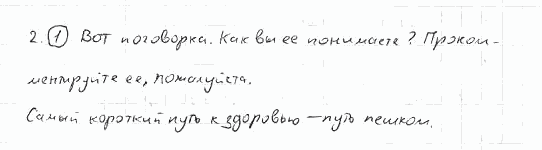 2. ① Вот поговорка. Как вы ее понимаете? Проком-
ментируйте ее, пожалуйста.
Самый короткий путь к здоровью — путь пешком.